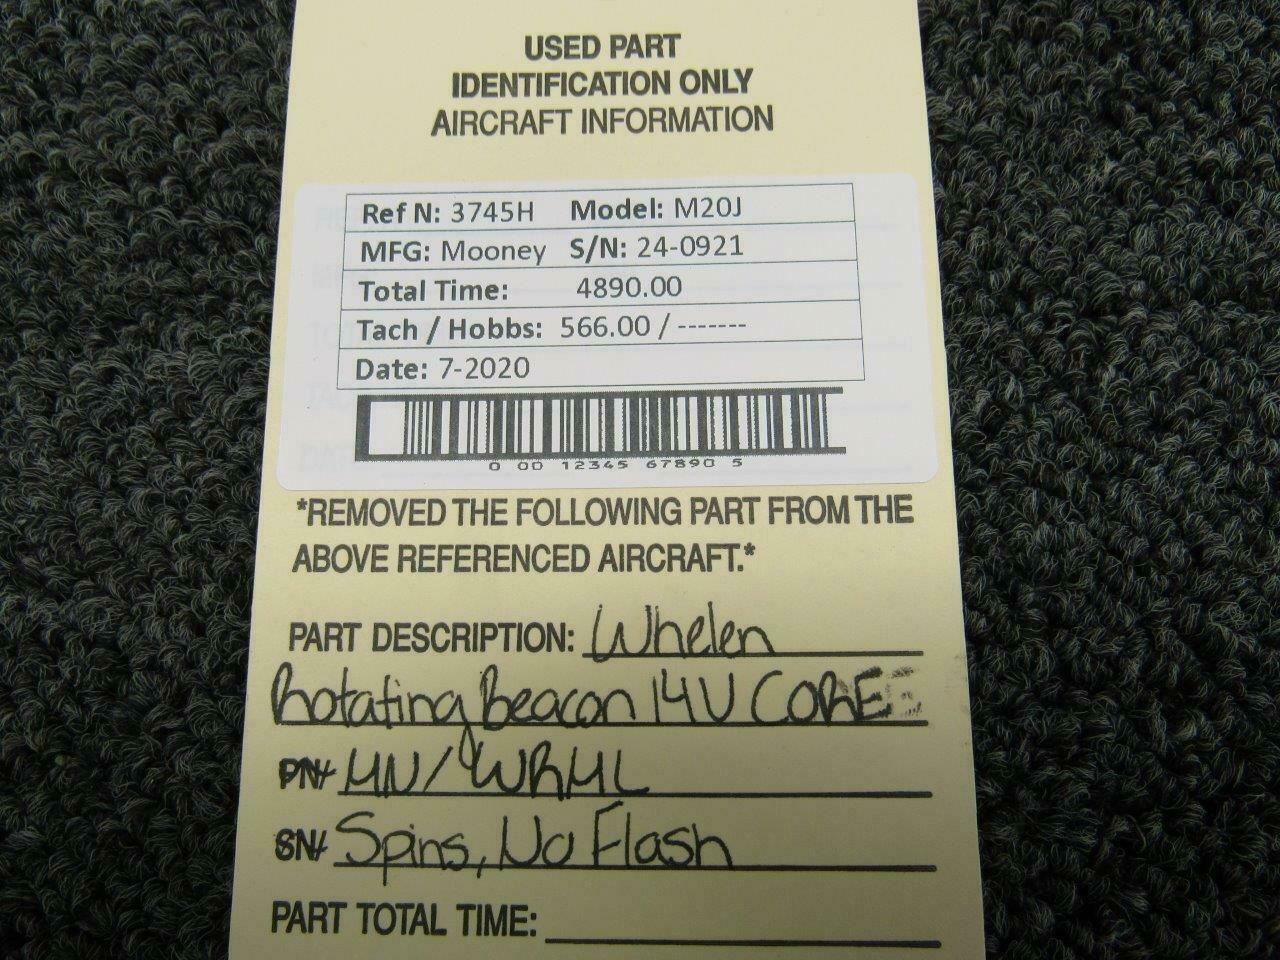 USED PART
IDENTIFICATION ONLY
AIRCRAFT INFORMATION
Ref N: 3745H Model: M20J
MFG: Mooney S/N: 24-0921
Total Time: 4890.00
Tach / Hobbs: 566.00 / -------
Date: 7-2020
0 00 12345 67890 5
*REMOVED THE FOLLOWING PART FROM THE
ABOVE REFERENCED AIRCRAFT.*
PART DESCRIPTION: Whelen
Rotating Beacon 14V CORE
PN/ MN/WRML
SN/ Spins, No Flash
PART TOTAL TIME: